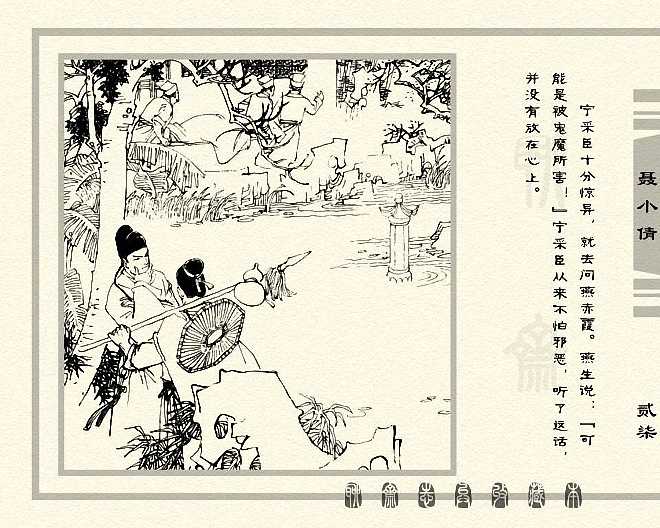 宁采臣十分惊异，就去问燕赤霞。燕生说：“可
能是被鬼魔所害！”宁采臣从来不怕邪恶，听了这话，
并没有放在心上。
聂小倩
贰柒
聊斋志异收藏本